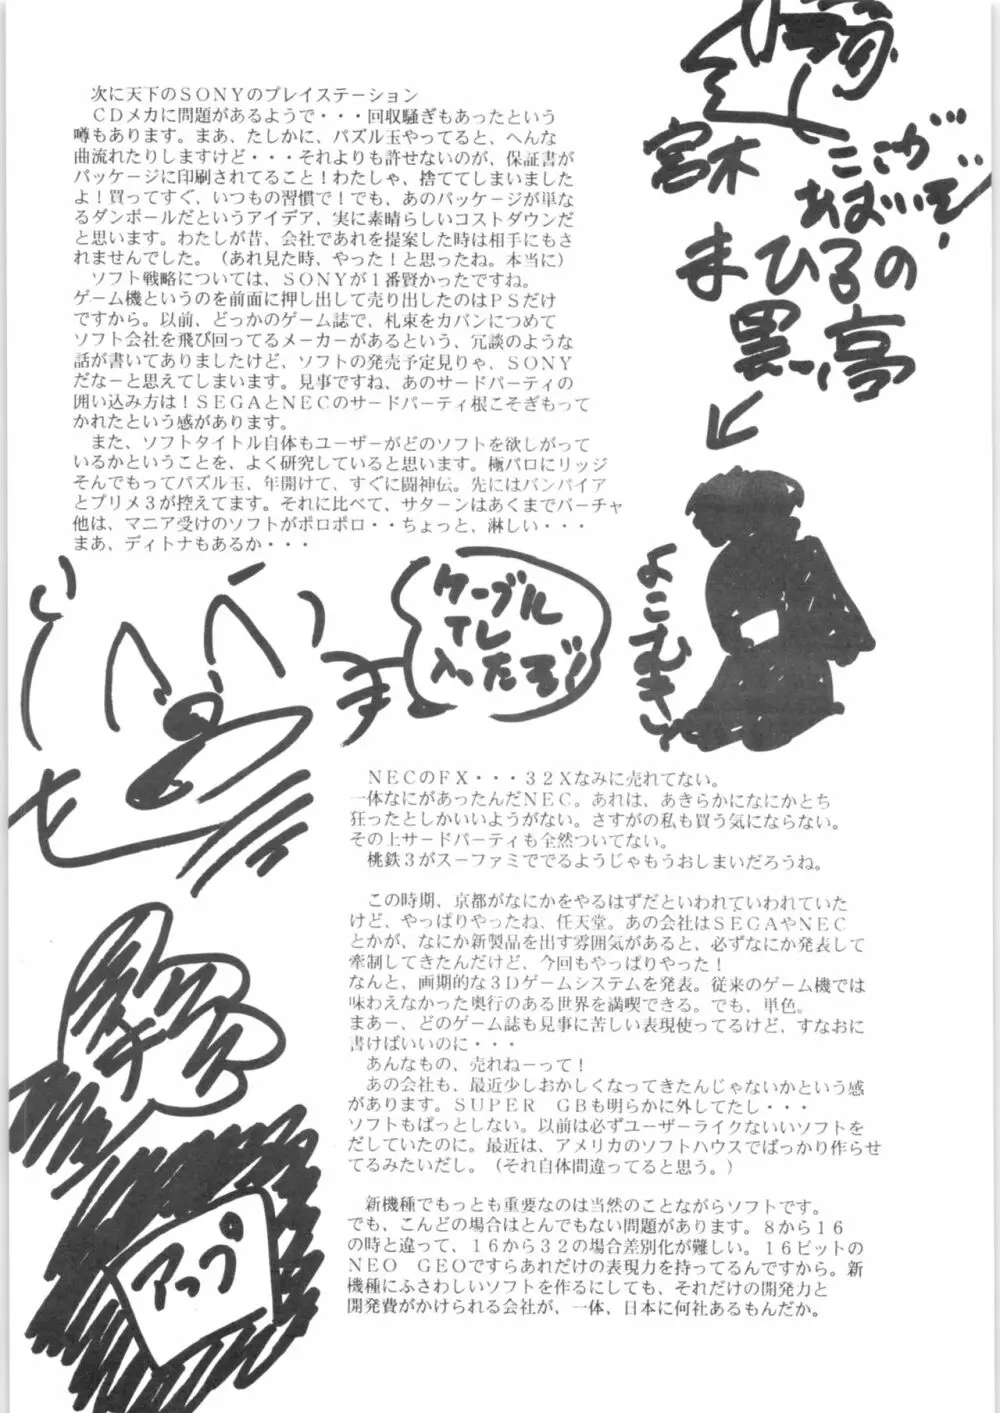 次に天下のSONYのプレイステーション
CDメカに問題があるようで・・・回収騒ぎもあったという
噂もあります。まあ、たしかに、パズル玉やってると、へんな
曲流れたりしますけど・・・それよりも許せないのが、保証書が
パッケージに印刷されてること！わたしゃ、捨ててしまいました
よ！買ってすぐ、いつもの習慣で！でも、あのパッケージが単な
るダンボールだというアイデア、実に素晴らしいコストダウンだ
と思います。わたしが昔、会社であれを提案した時は相手にもさ
れませんでした。（あれ見た時、やった！と思ったね。本当に）
ソフト戦略については、SONYが１番賢かったですね。
ゲーム機というのを前面に押し出して売り出したのはPSだけ
ですから。以前、どっかのゲーム誌で、札束をカバンにつめて
ソフト会社を飛び回ってるメーカーがあるという、冗談のような
話が書いてありましたけど、ソフトの発売予定見りゃ、SONY
だなーと思えてしまいます。見事ですね、あのサードパーティの
囲い込み方は！SEGAとNECのサードパーティ根こそぎもって
かれたという感があります。
また、ソフトタイトル自体もユーザーがどのソフトを欲しがって
いるかということを、よく研究していると思います。極パロにリッジ
そんでもってパズル玉、年開けて、すぐに闘神伝。先にはバンパイア
とプリメ３が控えてます。それに比べて、サターンはあくまでバーチャ
他は、マニア受けのソフトがポロポロ・・ちょっと、淋しい・・・
まあ、ディトナもあるか・・・
宮木
ここが
あまいぞ！
まひるの
黒い亭
よこむき
ケーブル
TV
入ったぞ！
NECのFX・・・３２Xなみに売れてない。
一体なにがあったんだNEC。あれは、あきらかになにかとち
狂ったとしかいいようがない。さすがの私も買う気にならない。
その上サードパーティも全然ついてない。
桃鉄３がスーファミででるようじゃもうおしまいだろうね。
この時期、京都がなにかをやるはずだといわれていわれていた
けど、やっぱりやったね、任天堂。あの会社はSEGAやNEC
とかが、なにか新製品を出す雰囲気があると、必ずなにか発表して
牽制してきたんだけど、今回もやっぱりやった！
なんと、画期的な３Dゲームシステムを発表。従来のゲーム機では
味わえなかった奥行のある世界を満喫できる。でも、単色。
まあー、どのゲーム誌も見事に苦しい表現使ってるけど、すなおに
書けばいいのに・・・
あんなもの、売れねーって！
あの会社も、最近少しおかしくなってきたんじゃないかという感
があります。SUPER　GBも明らかに外してたし・・・
ソフトもぱっとしない。以前は必ずユーザーライクないいソフトを
だしていたのに。最近は、アメリカのソフトハウスでばっかり作らせ
てるみたいだし。（それ自体間違ってると思う。）
新機種でもっとも重要なのは当然のことながらソフトです。
でも、こんどの場合はとんでもない問題があります。８から１６
の時と違って、１６から３２の場合差別化が難しい。１６ビットの
NEO　GEOですらあれだけの表現力を持ってるんですから。新
機種にふさわしいソフトを作るにしても、それだけの開発力と
開発費がかけられる会社が、一体、日本に何社あるもんだか。
アップ